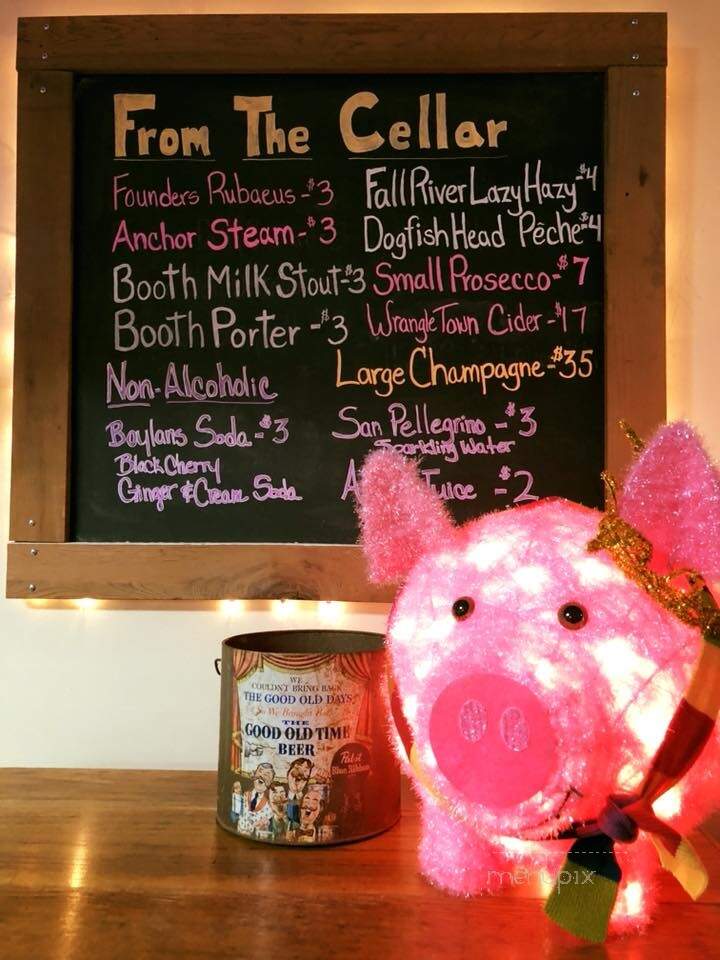 From The Cellar
Founders Rubaeus - $3
Anchor Steam - $3
Booth Milk Stout - $3
Booth Porter - $3
Non-Alcoholic
Boylans Soda - $3
Black Cherry
Ginger & Cream Soda
Fall River Lazy Hazy - $4
Dogfish Head Pêche - $4
Small Prosecco - $7
Wrangle Town Cider - $17
Large Champagne - $35
San Pellegrino - $3
Sparkling Water
Juice - $2
WE
COULDN'T BRING BACK
THE GOOD OLD DAYS
So We Brought Back
THE
GOOD OLD TIME
BEER
Pabst
Blue Ribbon
menupix